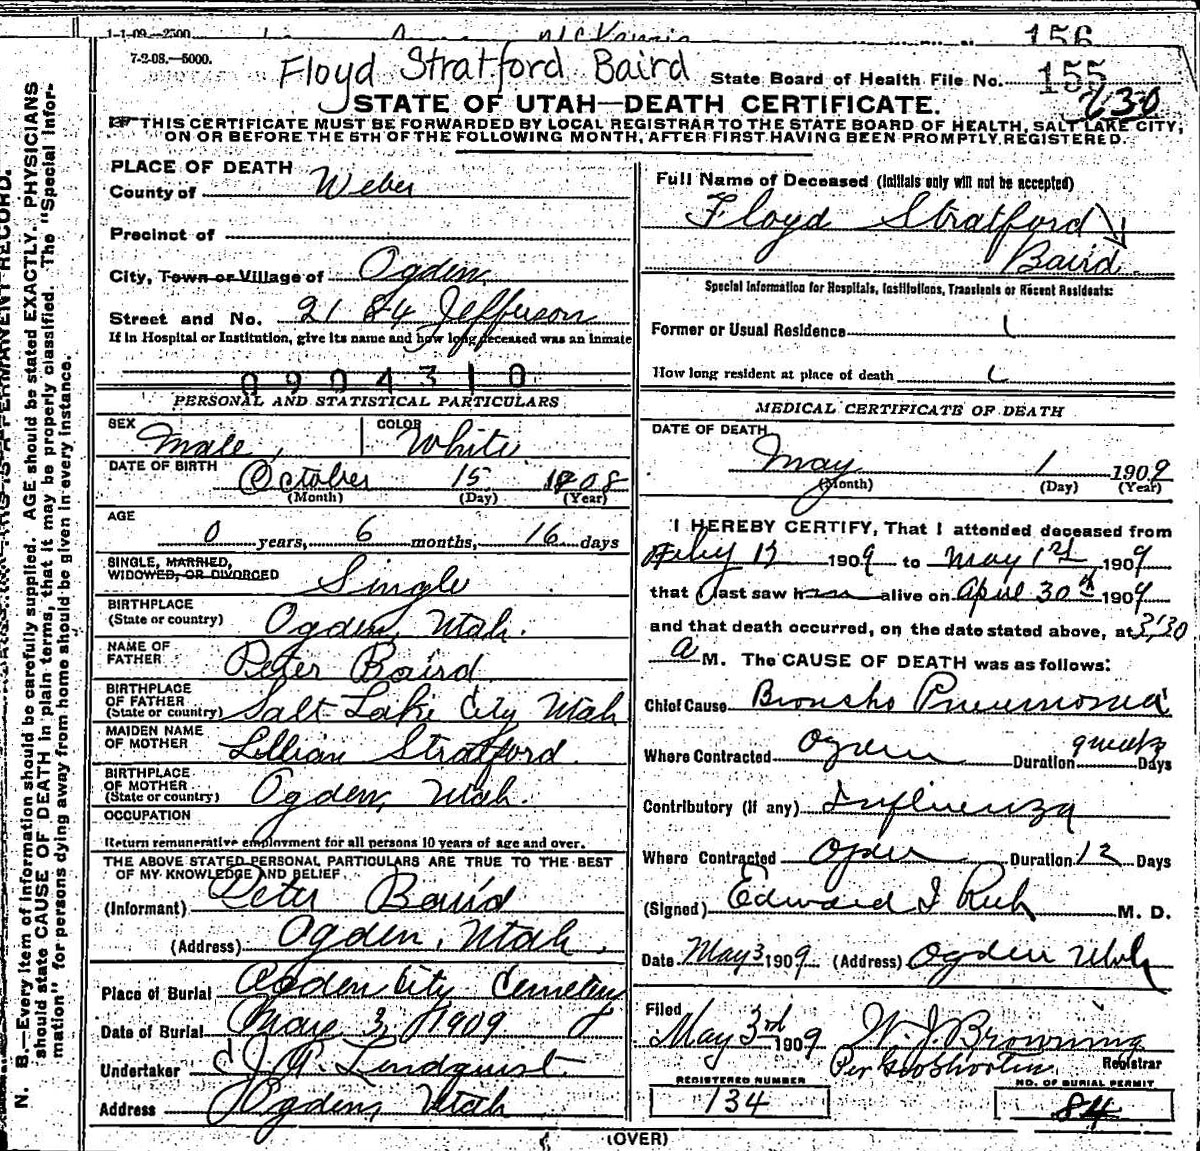 1-1-09.—2500.
156
7-2-08.—5000.
Floyd Stratford Baird State Board of Health File No. 155
230
STATE OF UTAH—DEATH CERTIFICATE.
THIS CERTIFICATE MUST BE FORWARDED BY LOCAL REGISTRAR TO THE STATE BOARD OF HEALTH, SALT LAKE CITY,
ON OR BEFORE THE 5TH OF THE FOLLOWING MONTH, AFTER FIRST HAVING BEEN PROMPTLY REGISTERED.
PLACE OF DEATH
County of Weber
Precinct of
City, Town or Village of Ogden
Street and No. 2184 Jefferson
If in Hospital or Institution, give its name and how long deceased was an inmate
0904310
PERSONAL AND STATISTICAL PARTICULARS
SEX Male, COLOR White
DATE OF BIRTH October 15 1908
(Month) (Day) (Year)
AGE
0 years, 6 months, 16 days
SINGLE, MARRIED,
WIDOWED, OR DIVORCED Single
BIRTHPLACE
(State or country) Ogden, Utah.
NAME OF
FATHER Peter Baird
BIRTHPLACE
OF FATHER
(State or country) Salt Lake City Utah
MAIDEN NAME
OF MOTHER Lillian Stratford
BIRTHPLACE
OF MOTHER
(State or country) Ogden, Utah.
OCCUPATION
Return remunerative employment for all persons 10 years of age and over.
THE ABOVE STATED PERSONAL PARTICULARS ARE TRUE TO THE BEST
OF MY KNOWLEDGE AND BELIEF
(Informant) Peter Baird
(Address) Ogden, Utah.
Place of Burial Ogden City Cemetery
Date of Burial May 3, 1909
Undertaker Lindquist
Address Ogden, Utah
Full Name of Deceased (Initials only will not be accepted)
Floyd Stratford
Baird
Special Information for Hospitals, Institutions, Transients or Recent Residents:
Former or Usual Residence
How long resident at place of death
MEDICAL CERTIFICATE OF DEATH
DATE OF DEATH
May 1 1909
(Month) (Day) (Year)
I HEREBY CERTIFY, That I attended deceased from
1909 to May 1st, 1909
that I last saw h alive on April 30th 1909
and that death occurred, on the date stated above, at 3:30
a M. The CAUSE OF DEATH was as follows:
Chief Cause Broncho Pneumonia
Where Contracted Ogden Duration weeks Days
Contributory (if any) Influenza
Where Contracted Ogden Duration 12 Days
(Signed) Edward I Rich M. D.
Date May 3 1909 (Address) Ogden Utah
Filed
May 3rd 1909 W. J. Browning
Per Registrar
REGISTERED NUMBER
134
NO. OF BURIAL PERMIT
84
(OVER)
N. B.—Every item of information should be carefully supplied. AGE should be stated EXACTLY. PHYSICIANS
should state CAUSE OF DEATH in plain terms, that it may be properly classified. The "Special Infor-
mation" for persons dying away from home should be given in every instance.